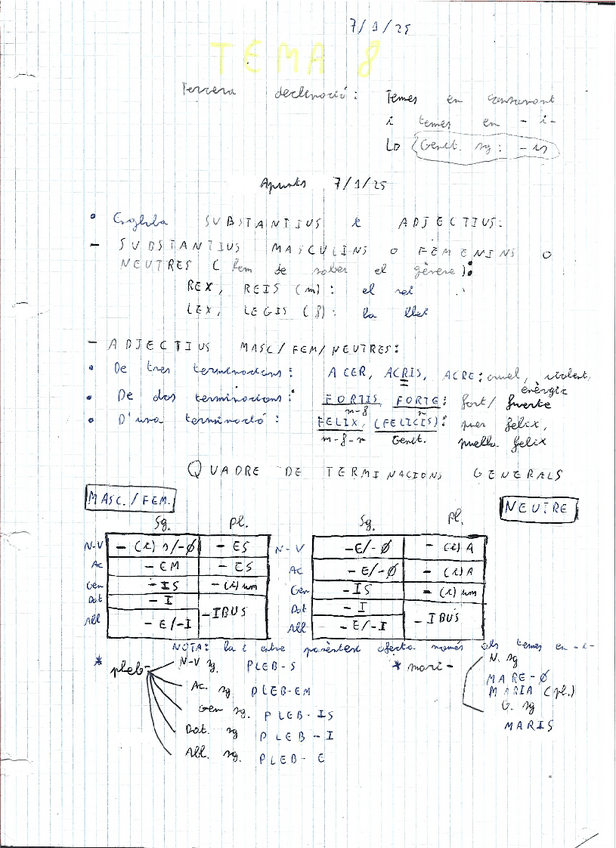 7/1/25
TEMA 8
Tercera declinació: Temes en consonant
i temes en -i-
Lo Genit. sg: -is
Apunts 7/1/25
• Engloba SUBSTANTIUS I ADJECTIUS:
- SUBSTANTIUS MASCULINS O FEMENINS O
NEUTRES (hem de saber el gènere):
REX, REIS (m): el rei
LEX, LEGIS (f): la llei
- ADJECTIUS MASC/FEM/NEUTRES:
• De tres terminacions: ACER, ACRIS, ACRE: cruel, violent,
enèrgic
• De dos terminacions: FORTIS FORTE: fort/fuerte
m-f n
• D'una terminació: FELIX, (FELICIS): puer felix,
m-f-n Genit. puella felix
QUADRE DE TERMINACIONS GENERALS
MASC./FEM. NEUTRE
Sg. Pl. Sg. Pl.
N-V -(i)s/-Ø -ES N-V -E/-Ø -(i)A
Ac -EM -ES Ac -E/-Ø -(i)A
Gen -IS -(i)um Gen -IS -(i)um
Dat -I -IBUS Dat -I -IBUS
Abl -E/-I Abl -E/-I
NOTA: la i entre parèntesi afecta només els temes en -i-
* pleb- N-V sg. PLEB-S * mari- N. sg
Ac. sg PLEB-EM MARE-Ø
MARIA (pl.)
Gen sg. PLEB-IS G. sg
Dat. sg PLEB-I MARIS
Abl. sg. PLEB-E